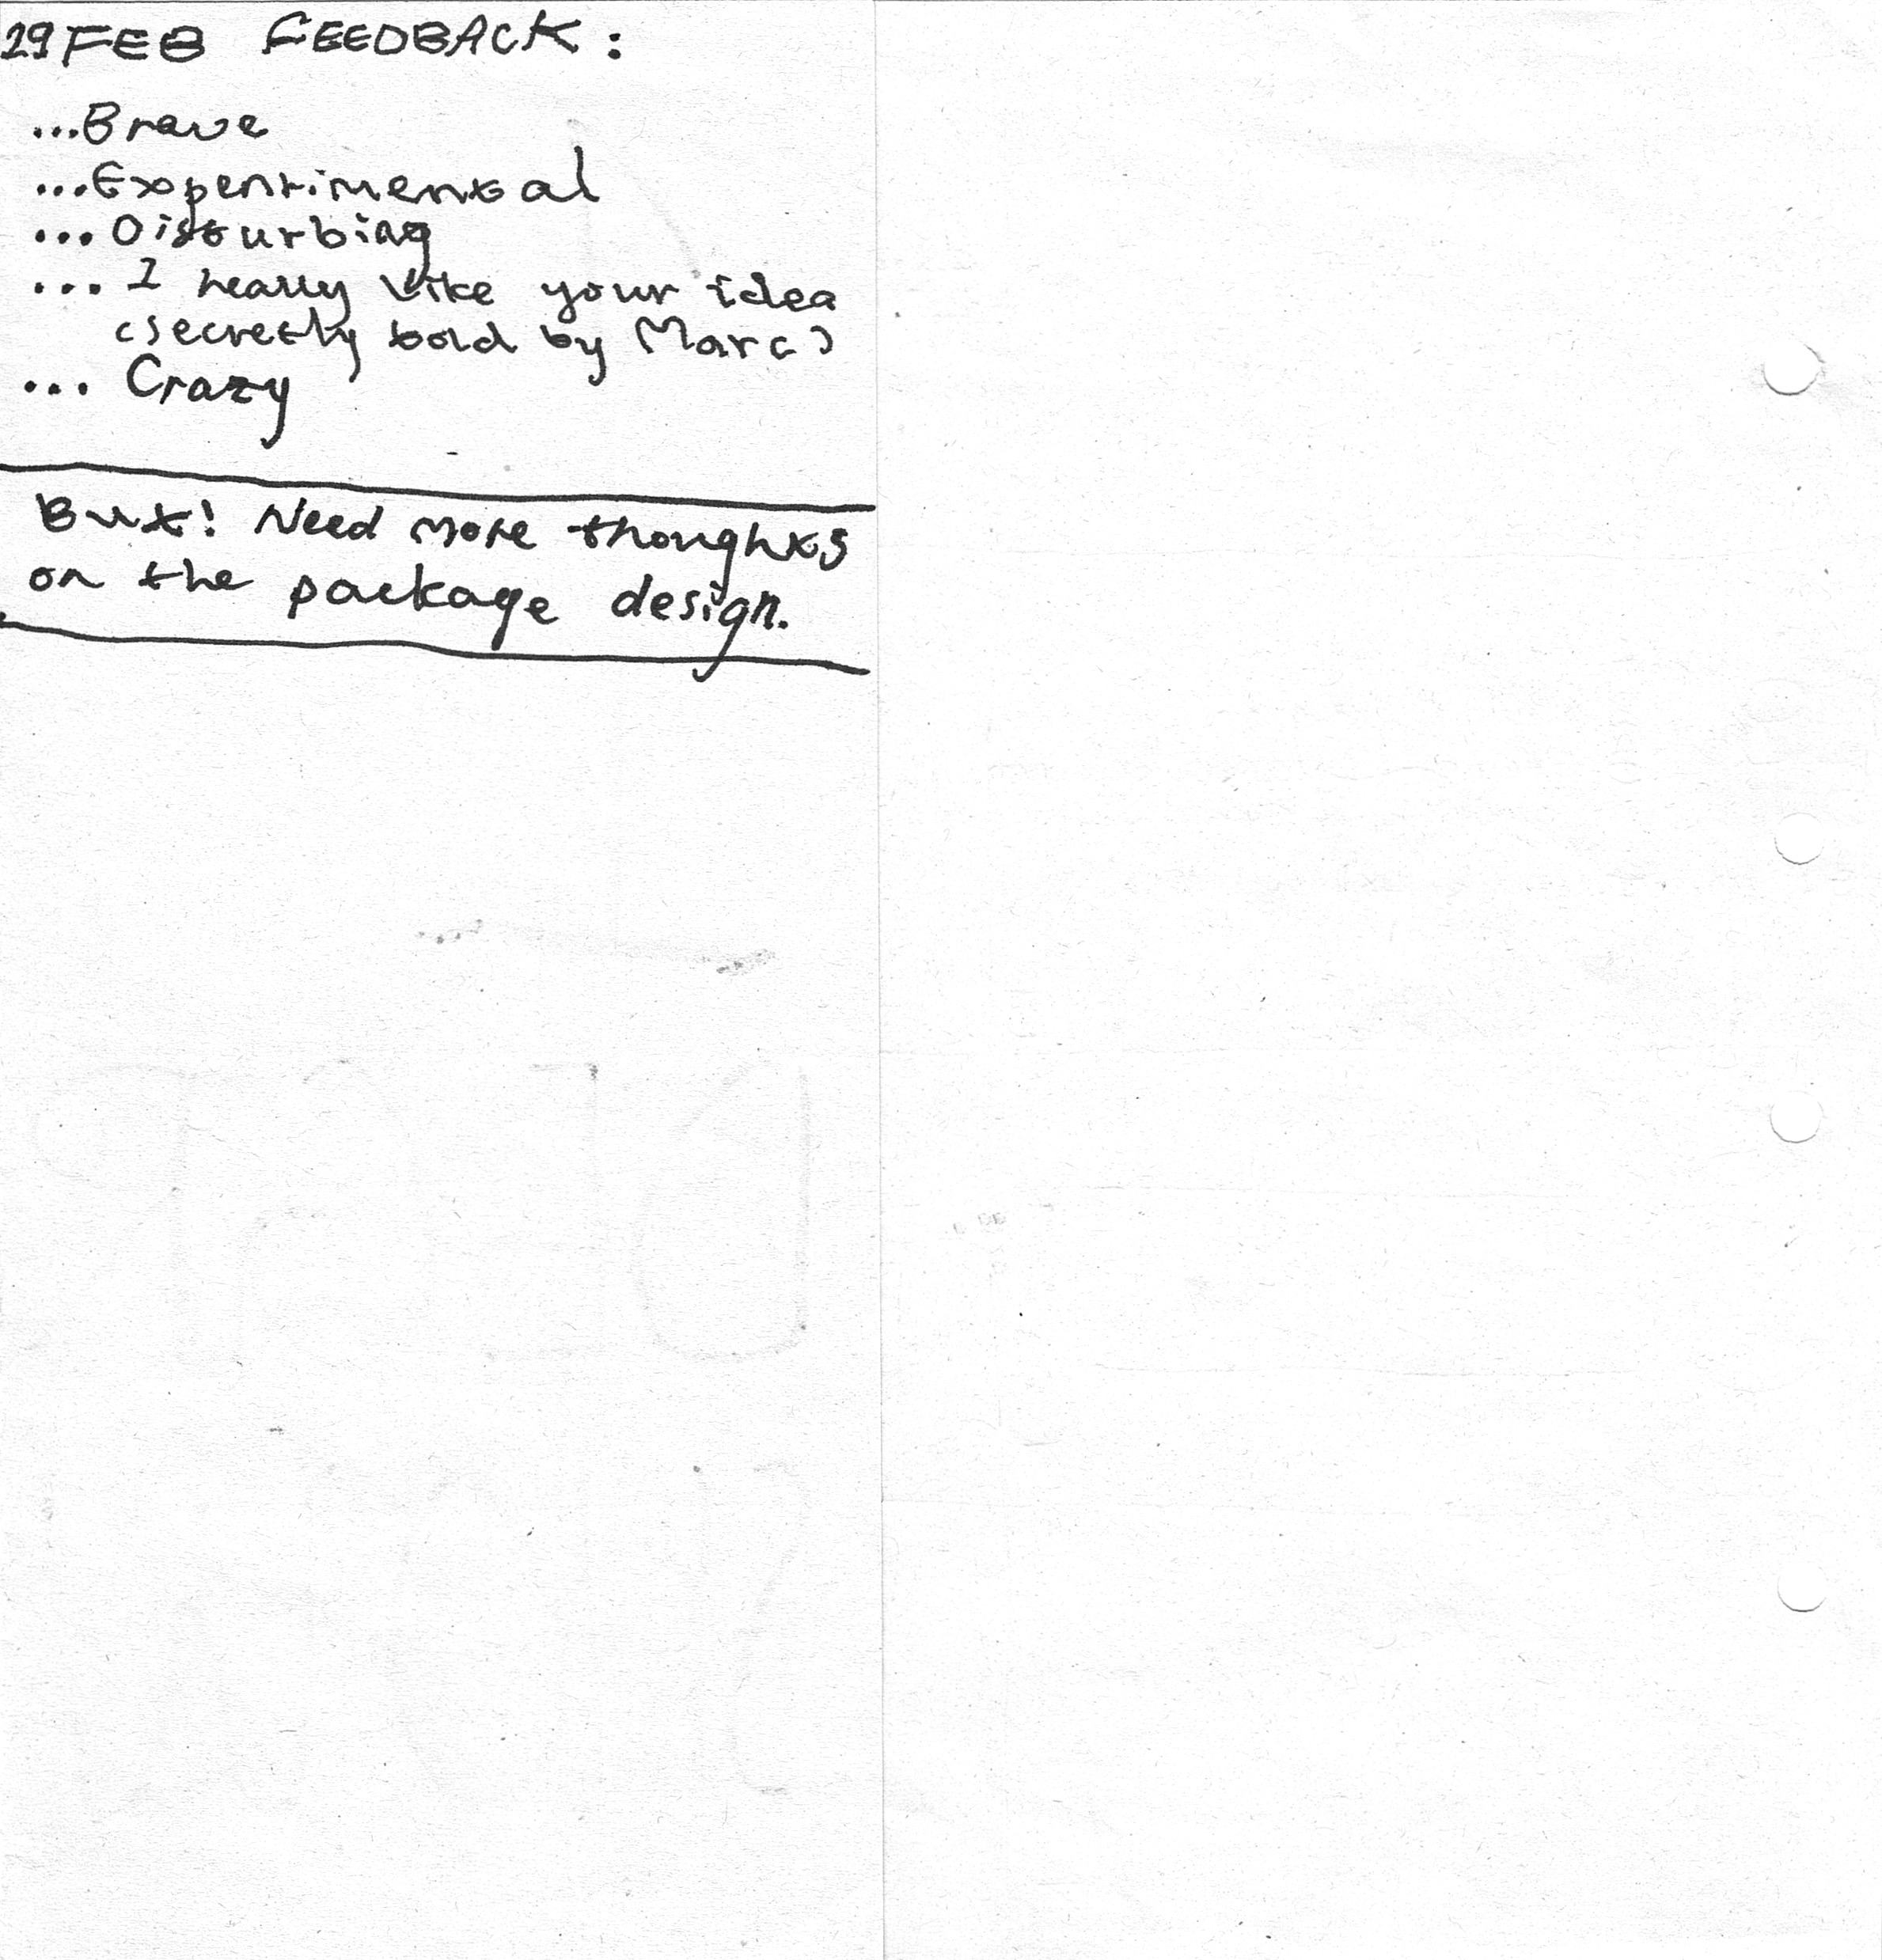 29 FEB FEEDBACK:
...Brave
...Experimental
...Disturbing
... I really like your idea
(secretly told by Marc)
... Crazy
But! Need more thoughts
on the package design.